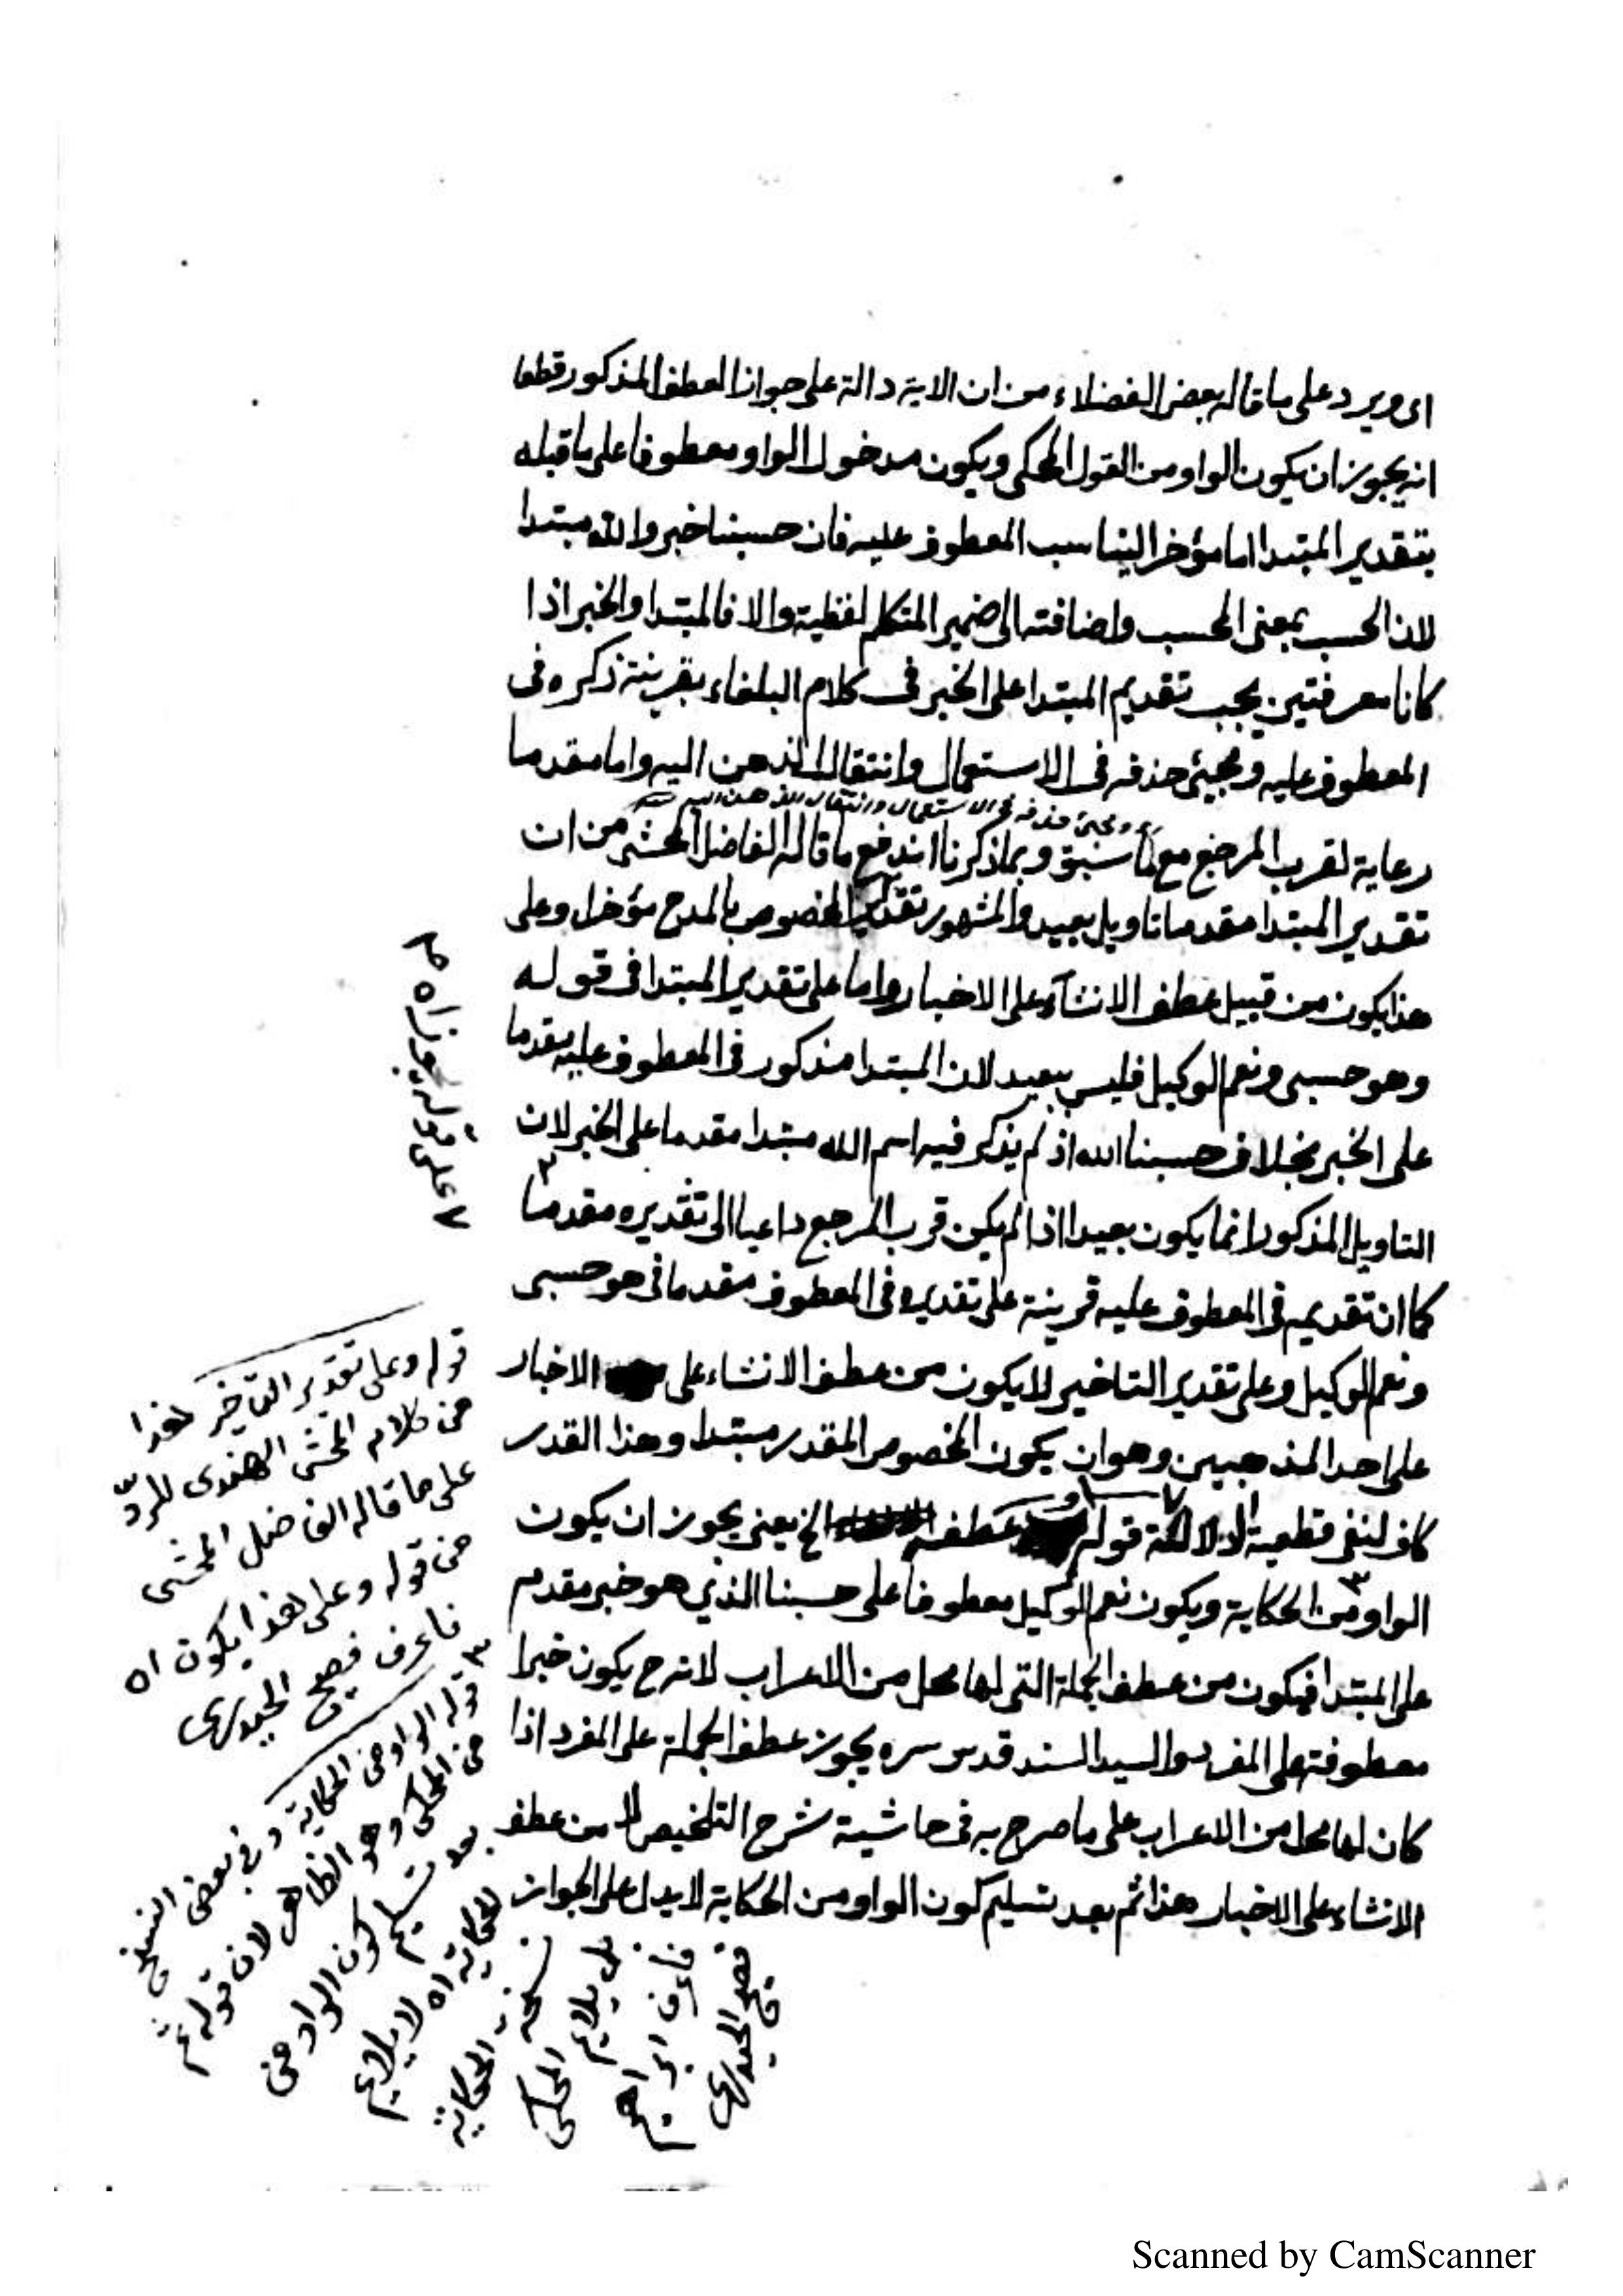 اى ويرد على ما قاله بعض الفضلاء من ان الاية دالة على جواز العطف المذكور قطعا
انه يجوز ان يكون الواو من القول المحكى ويكون مدخول الواو معطوفا على ما قبله
بتقدير المبتدا اما مؤخرا ليناسب المعطوف عليه فان حسبنا خبر والله مبتدا
لان الحسب بمعنى المحسب واضافته الى ضمير المتكلم لفظية والا فالمبتدا والخبر اذا
كانا معرفتين يجب تقديم المبتدا على الخبر فى كلام البلغاء بقرينة ذكره فى
المعطوف عليه ومجيئ حذفه فى الاستعمال وانتقال الذهن اليه واما مقدما
ومجئ حذفه فى الاستعمال وانتقال الذهن اليه
رعاية لقرب المرجع مع ما سبق وبما ذكرنا اندفع ما قاله الفاضل المحشى من ان
تقدير المبتدا مقدما تاويل بعيد والمشهور تقدير المخصوص بالمدح مؤخرا وعلى
هذا يكون من قبيل عطف الانشاء على الاخبار واما على تقدير المبتدا فى قوله
وهو حسبى ونعم الوكيل فليس ببعيد لان المبتدا مذكور فى المعطوف عليه مقدما
على الخبر بخلاف حسبنا الله اذ لم يذكر فيه اسم الله مبتدا مقدما على الخبر لان
التاويل المذكور انما يكون بعيدا اذا لم يكن قرب المرجع داعيا الى تقديره مقدما
كما ان تقديمه فى المعطوف عليه قرينة على تقديره فى المعطوف مقدما فى هو حسبى
ونعم الوكيل وعلى تقدير التاخير لا يكون من عطف الانشاء على الاخبار
على احد المذهبين وهو ان يكون المخصوص المقدر مبتدا وهذا القدر
كاف لنفى قطعية الدلالة قوله عطف الخ يعنى يجوز ان يكون
الواو من الحكاية ويكون نعم الوكيل معطوفا على حسبنا الذي هو خبر مقدم
على المبتدا فيكون من عطف الجملة التى لها محل من الاعراب لانه ح يكون خبرا
معطوفة على المفرد والسيد السند قدس سره يجوز عطف الجملة على المفرد اذا
كان لها محل من الاعراب على ما صرح به فى حاشية شرح التلخيص لا من عطف
الانشاء على الاخبار هذا ثم بعد تسليم كون الواو من الحكاية لا يدل على الجواز
٧ على قوله يجوز اه ٣
قوله وعلى تقدير التاخير هذا
من كلام المحشى الهندى للردّ
على ما قاله الفاضل المحشى
من قوله وعلى هذا يكون اه
فاعرف فصيح الحيدرى
٣ قوله الواو من الحكاية وفى بعض النسخ
من المحكى وهو الظاهر لان قوله ثم
بعد تسليم كون الواو من
الحكاية اه لا يلايم
نسخة الحكاية
بل يلايم المحكى
فاعرف ابراهيم
فصيح الحيدرى
Scanned by CamScanner